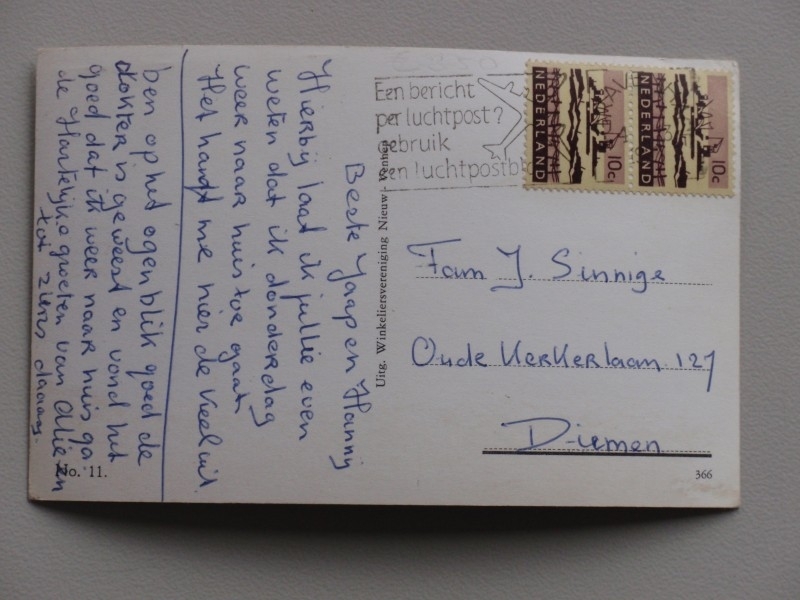 Beste Jaap en Hanny
Hierbij laat ik jullie even
weten dat ik donderdag
weer naar huis toe gaat
Het hangt me hier de keel uit.
ben op het ogenblik goed de
dokter is geweest en vond het
goed dat ik weer naar huis ga
de Hartelijke groeten van
tot ziens daaag.
No. 11.
Uitg. Winkeliersvereniging Nieuw-
Een bericht
per luchtpost?
gebruik
een luchtpostbl
NEDERLAND
10c
NEDERLAND
10c
Fam J. Sinnige
Oude Kerkerlaan 127
Diemen
366